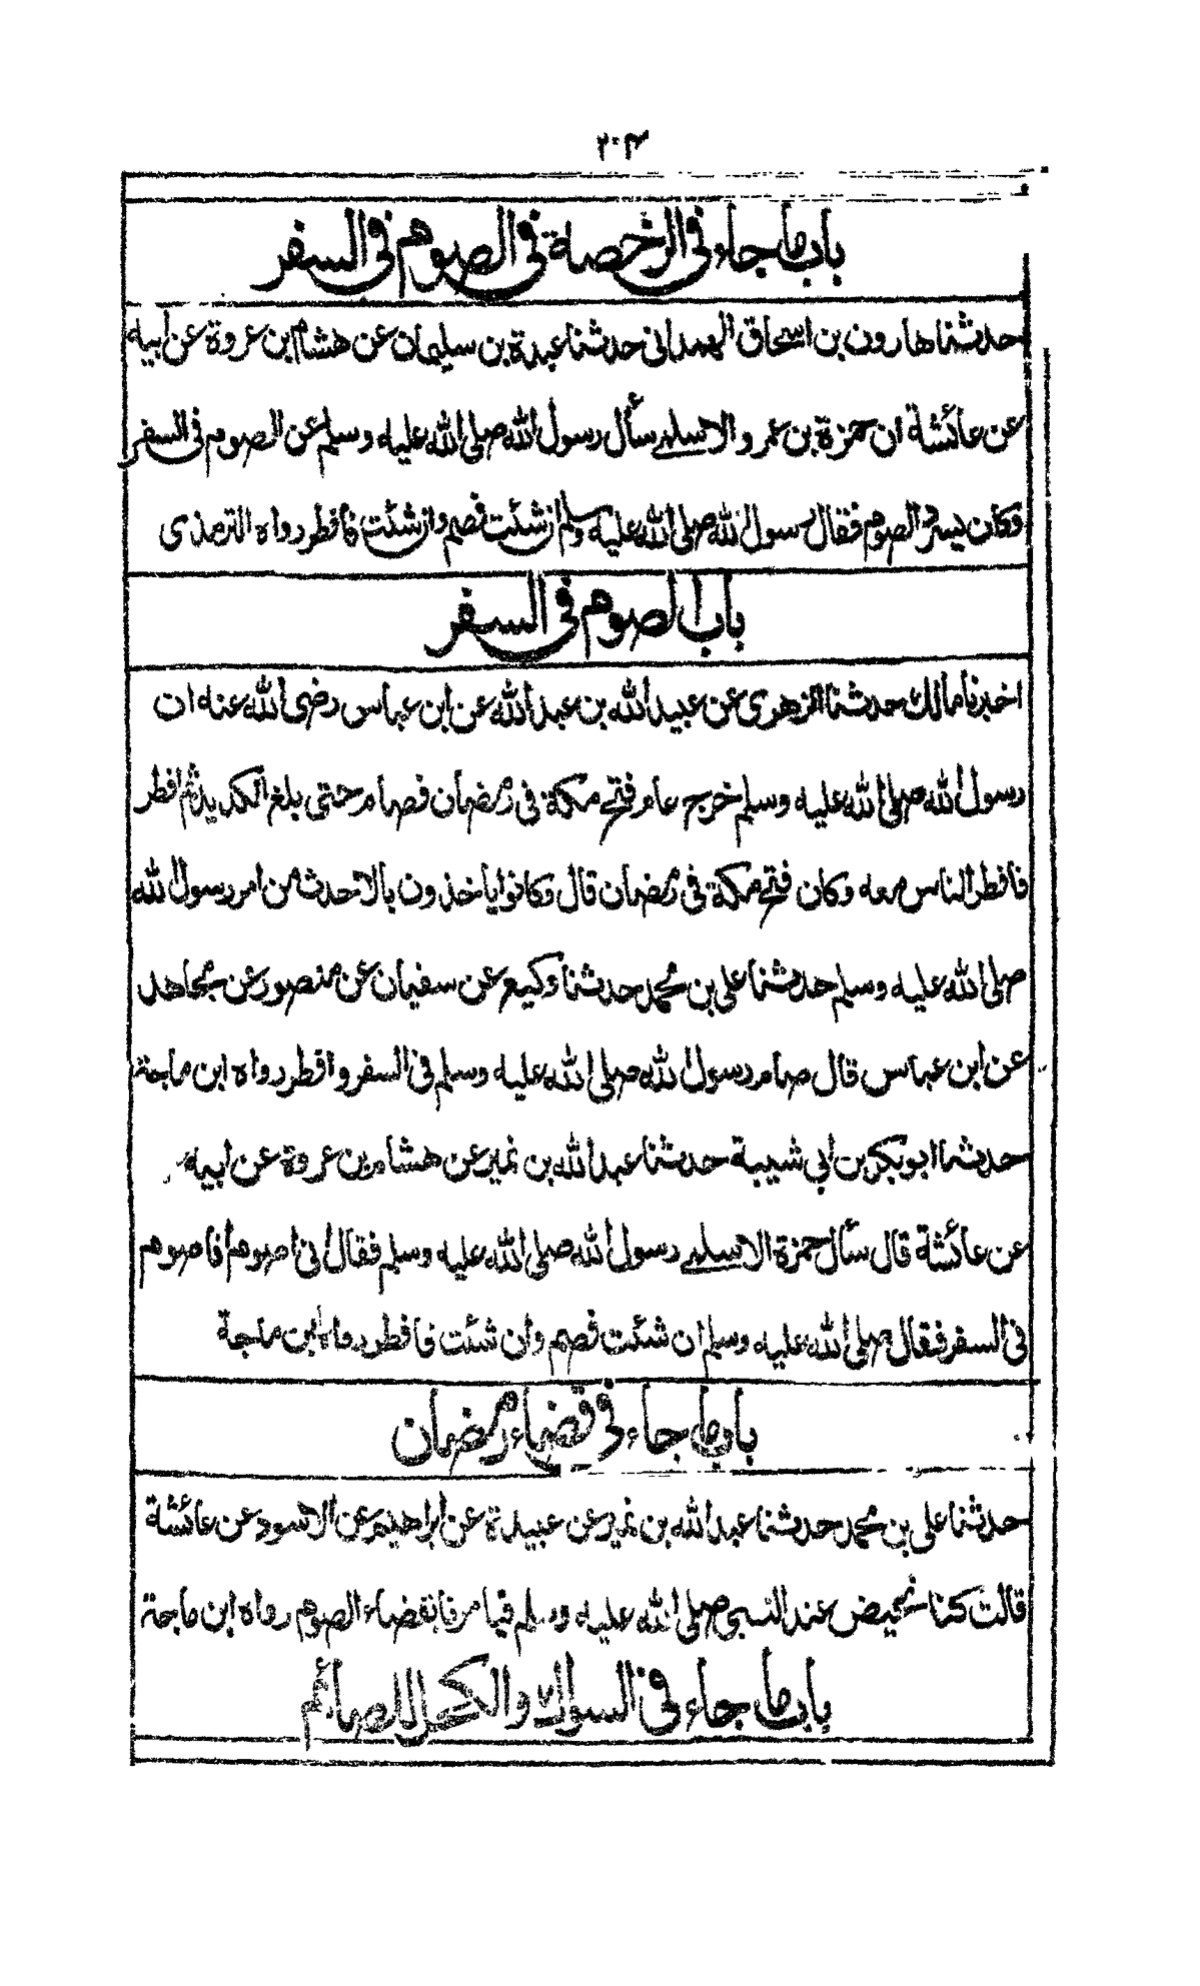 ۲۰۴
باب ما جاء فى الرخصة فى الصوم فى السفر
حدثنا هارون بن اسحاق الهمدانى حدثنا عبدة بن سليمان عن هشام ابن عروة عن أبيه
عن عائشة ان حمزة بن عمرو الاسلمى سأل رسول الله صلى الله عليه وسلم عن الصوم فى السفر
وكان يسرد الصوم فقال رسول الله صلى الله عليه وسلم ان شئت فصم وان شئت فافطر رواه الترمذى
باب الصوم فى السفر
اخبرنا مالك حدثنا الزهرى عن عبيد الله بن عبد الله عن ابن عباس رضى الله عنه ان
رسول الله صلى الله عليه وسلم خرج عام فتح مكة فى رمضان فصام حتى بلغ الكديد ثم افطر
فافطر الناس معه وكان فتح مكة فى رمضان قال وكانوا ياخذون بالاحدث من امر رسول الله
صلى الله عليه وسلم حدثنا على بن محمد حدثنا وكيع عن سفيان عن منصور عن مجاهد
عن ابن عباس قال صام رسول الله صلى الله عليه وسلم فى السفر وافطر رواه ابن ماجة
حدثنا ابو بكر بن أبى شيبة حدثنا عبد الله بن نمير عن هشام بن عروة عن ابيه
عن عائشة قال سأل حمزة الاسلمى رسول الله صلى الله عليه وسلم فقال انى اصوم أفاصوم
فى السفر فقال صلى الله عليه وسلم ان شئت فصم وان شئت فافطر رواه ابن ماجة
باب ما جاء فى قضاء رمضان
حدثنا على بن محمد حدثنا عبد الله بن نمير عن عبيدة عن ابراهيم عن الاسود عن عائشة
قالت كنا نحيض عند النبى صلى الله عليه وسلم فيامرنا بقضاء الصوم رواه ابن ماجة
باب ما جاء فى السواك والكحل للصائم